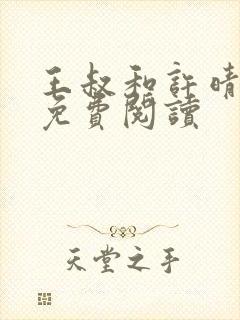 王叔和許晴
免費閱讀
天堂之手